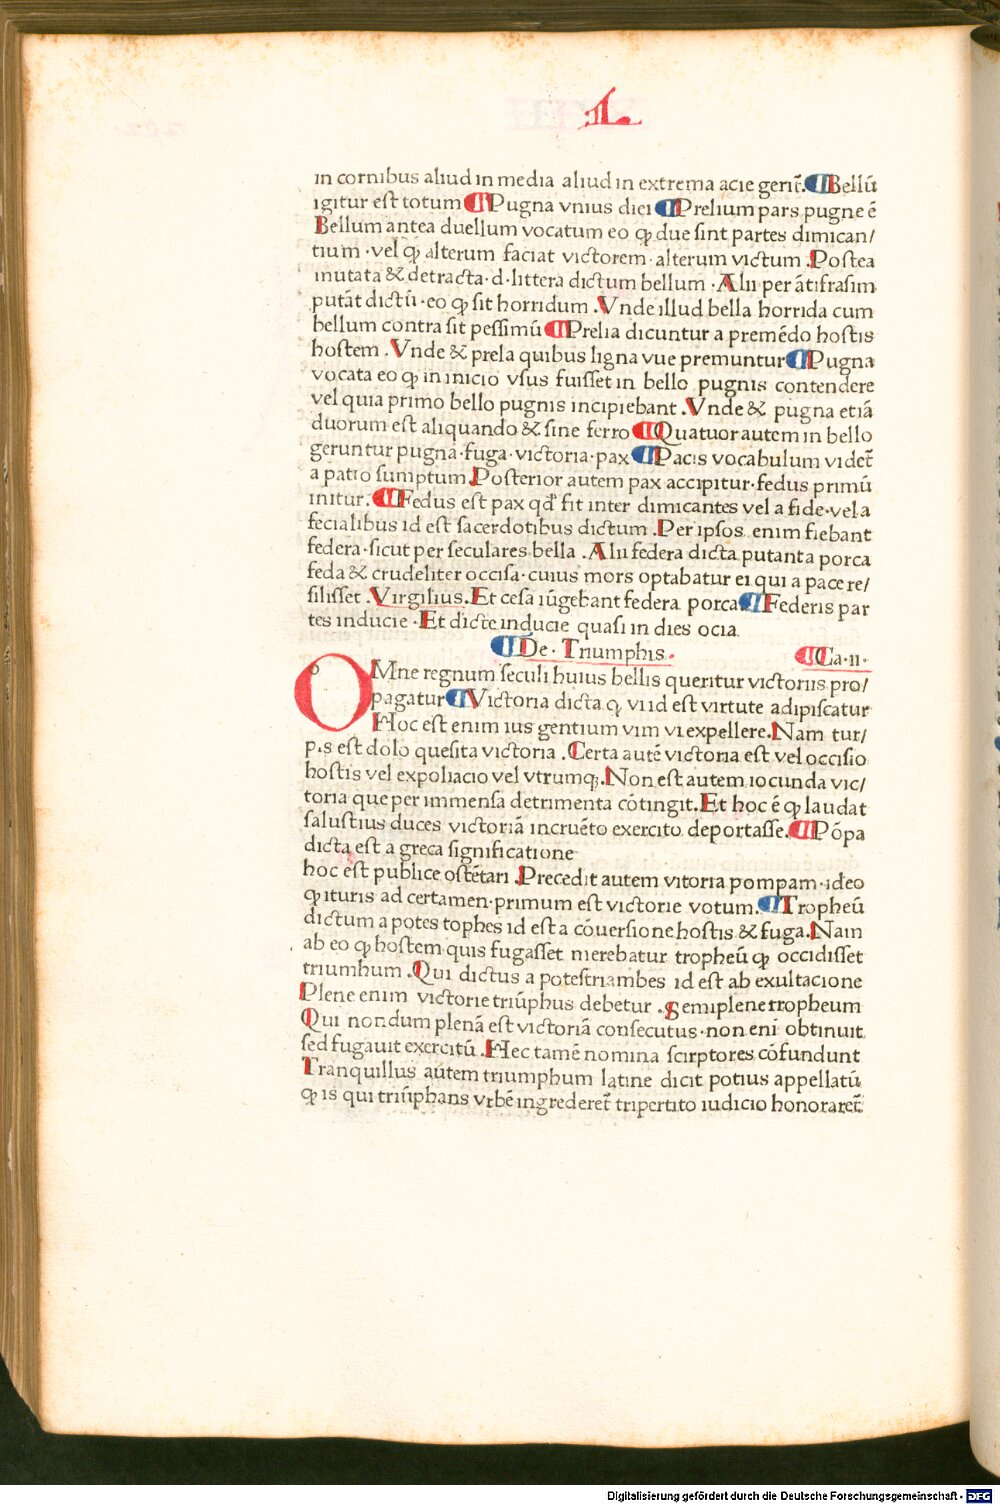 .L.
in cornibus aliud in media aliud in extrema acie gerit̄. ¶ Bellū
igitur est totum ¶ Pugna vnius diei ¶ Prelium pars pugne ē
Bellum antea duellum vocatum eo ꝙ due sint partes dimican/
tium · vel ꝙ alterum faciat victorem · alterum victum . Postea
mutata & detracta · d · littera dictum bellum · Alii per ātifrasim
putāt dictū · eo ꝙ sit horridum . Vnde illud bella horrida cum
bellum contra sit pessimū ¶ Prelia dicuntur a premēdo hostis
hostem . Vnde & prela quibus ligna vue premuntur ¶ Pugna
vocata eo ꝙ in inicio vsus fuisset in bello pugnis contendere
vel quia primo bello pugnis incipiebant . Vnde & pugna etiā
duorum est aliquando & sine ferro ¶ Quatuor autem in bello
geruntur pugna · fuga · victoria · pax ¶ Pacis vocabulum videt̄
a patio sumptum . Posterior autem pax accipitur · fedus primū
initur . ¶ Fedus est pax qd̄ fit inter dimicantes vel a fide · vel a
fecialibus id est sacerdotibus dictum . Per ipsos enim fiebant
federa · sicut per seculares bella . Alii federa dicta putant a porca
feda & crudeliter occisa · cuius mors optabatur ei qui a pace re/
silisset . Virgilius . Et cesa iūgebant federa porca ¶ Federis par
tes inducie · Et dicte inducie quasi in dies ocia
¶ De · Triumphis · ¶ Ca · ii ·
OMne regnum seculi huius bellis queritur victoriis pro/
pagatur ¶ Victoria dicta ꝙ vi id est virtute adipiscatur
Hoc est enim ius gentium vim vi expellere . Nam tur/
pis est dolo quesita victoria . Certa autē victoria est vel occisio
hostis vel expoliacio vel vtrumqꝫ . Non est autem iocunda vic/
toria que per immensa detrimenta cōtingit . Et hoc ē ꝙ laudat
salustius duces victoriā incruēto exercito deportasse . ¶ Pōpa
dicta est a greca significatione
hoc est publice ostētari . Precedit autem vitoria pompam · ideo
ꝙ ituris ad certamen · primum est victorie votum . ¶ Tropheū
dictum a potes tophes id est a cōuersione hostis & fuga . Nam
ab eo ꝙ hostem quis fugasset merebatur tropheū ꝙ occidisset
triumhum . Qui dictus a potestriambes id est ab exultacione
Plene enim victorie triūphus debetur . Semiplene tropheum
Qui nondum plenā est victoriā consecutus · non eni obtinuit
sed fugauit exercitū . Hec tamē nomina scirptores cōfundunt
Tranquillus autem triumphum latine dicit potius appellatū
ꝙ is qui triūphans vrbē ingrederet̄ tripertito iudicio honoraret̄
Digitalisierung gefördert durch die Deutsche Forschungsgemeinschaft - DFG